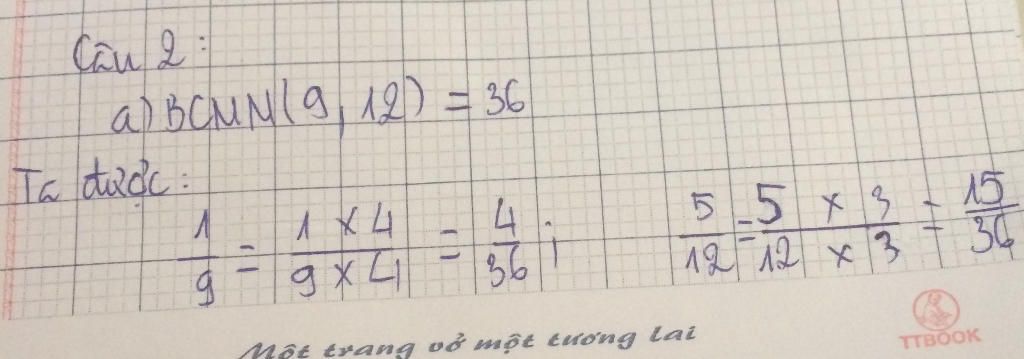 Câu 2:
a) BCNN(9, 12) = 36
Ta được:
1/9 = (1 x 4)/(9 x 4) = 4/36 ; 5/12 = (5 x 3)/(12 x 3) = 15/36
Một trang vở một tương lai
TTBOOK